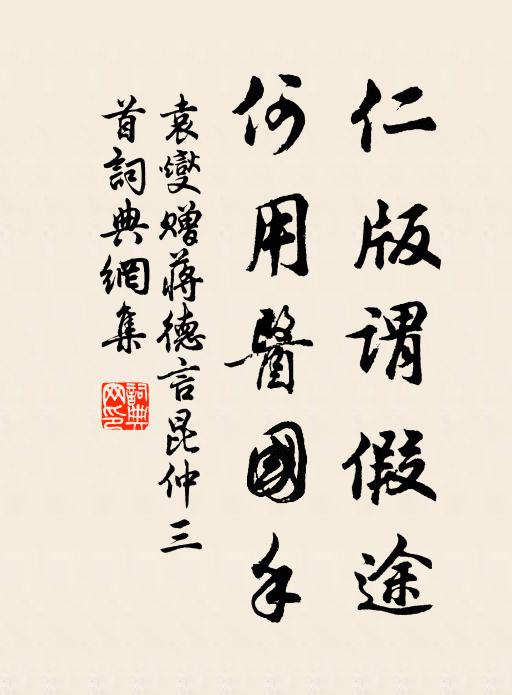 仁版谓假途
何用醫國手
袁燮赠蒋德言昆仲三
首詞典網集
詞典網印